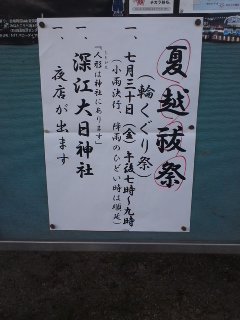 夏越祓祭
(輪くぐり祭)
一、七月三十日(金)午後七時〜九時
(小雨決行、降雨のひどい時は順延)
「人形は神社にあります」
一、深江大日神社
一、夜店が出ます